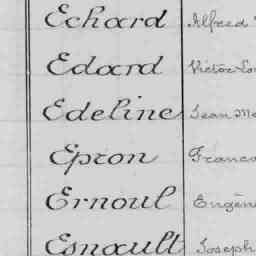 Echard Alfred
Edard Victor
Edeline Jean
Epron
Ernoul Eugène
Esnault Joseph